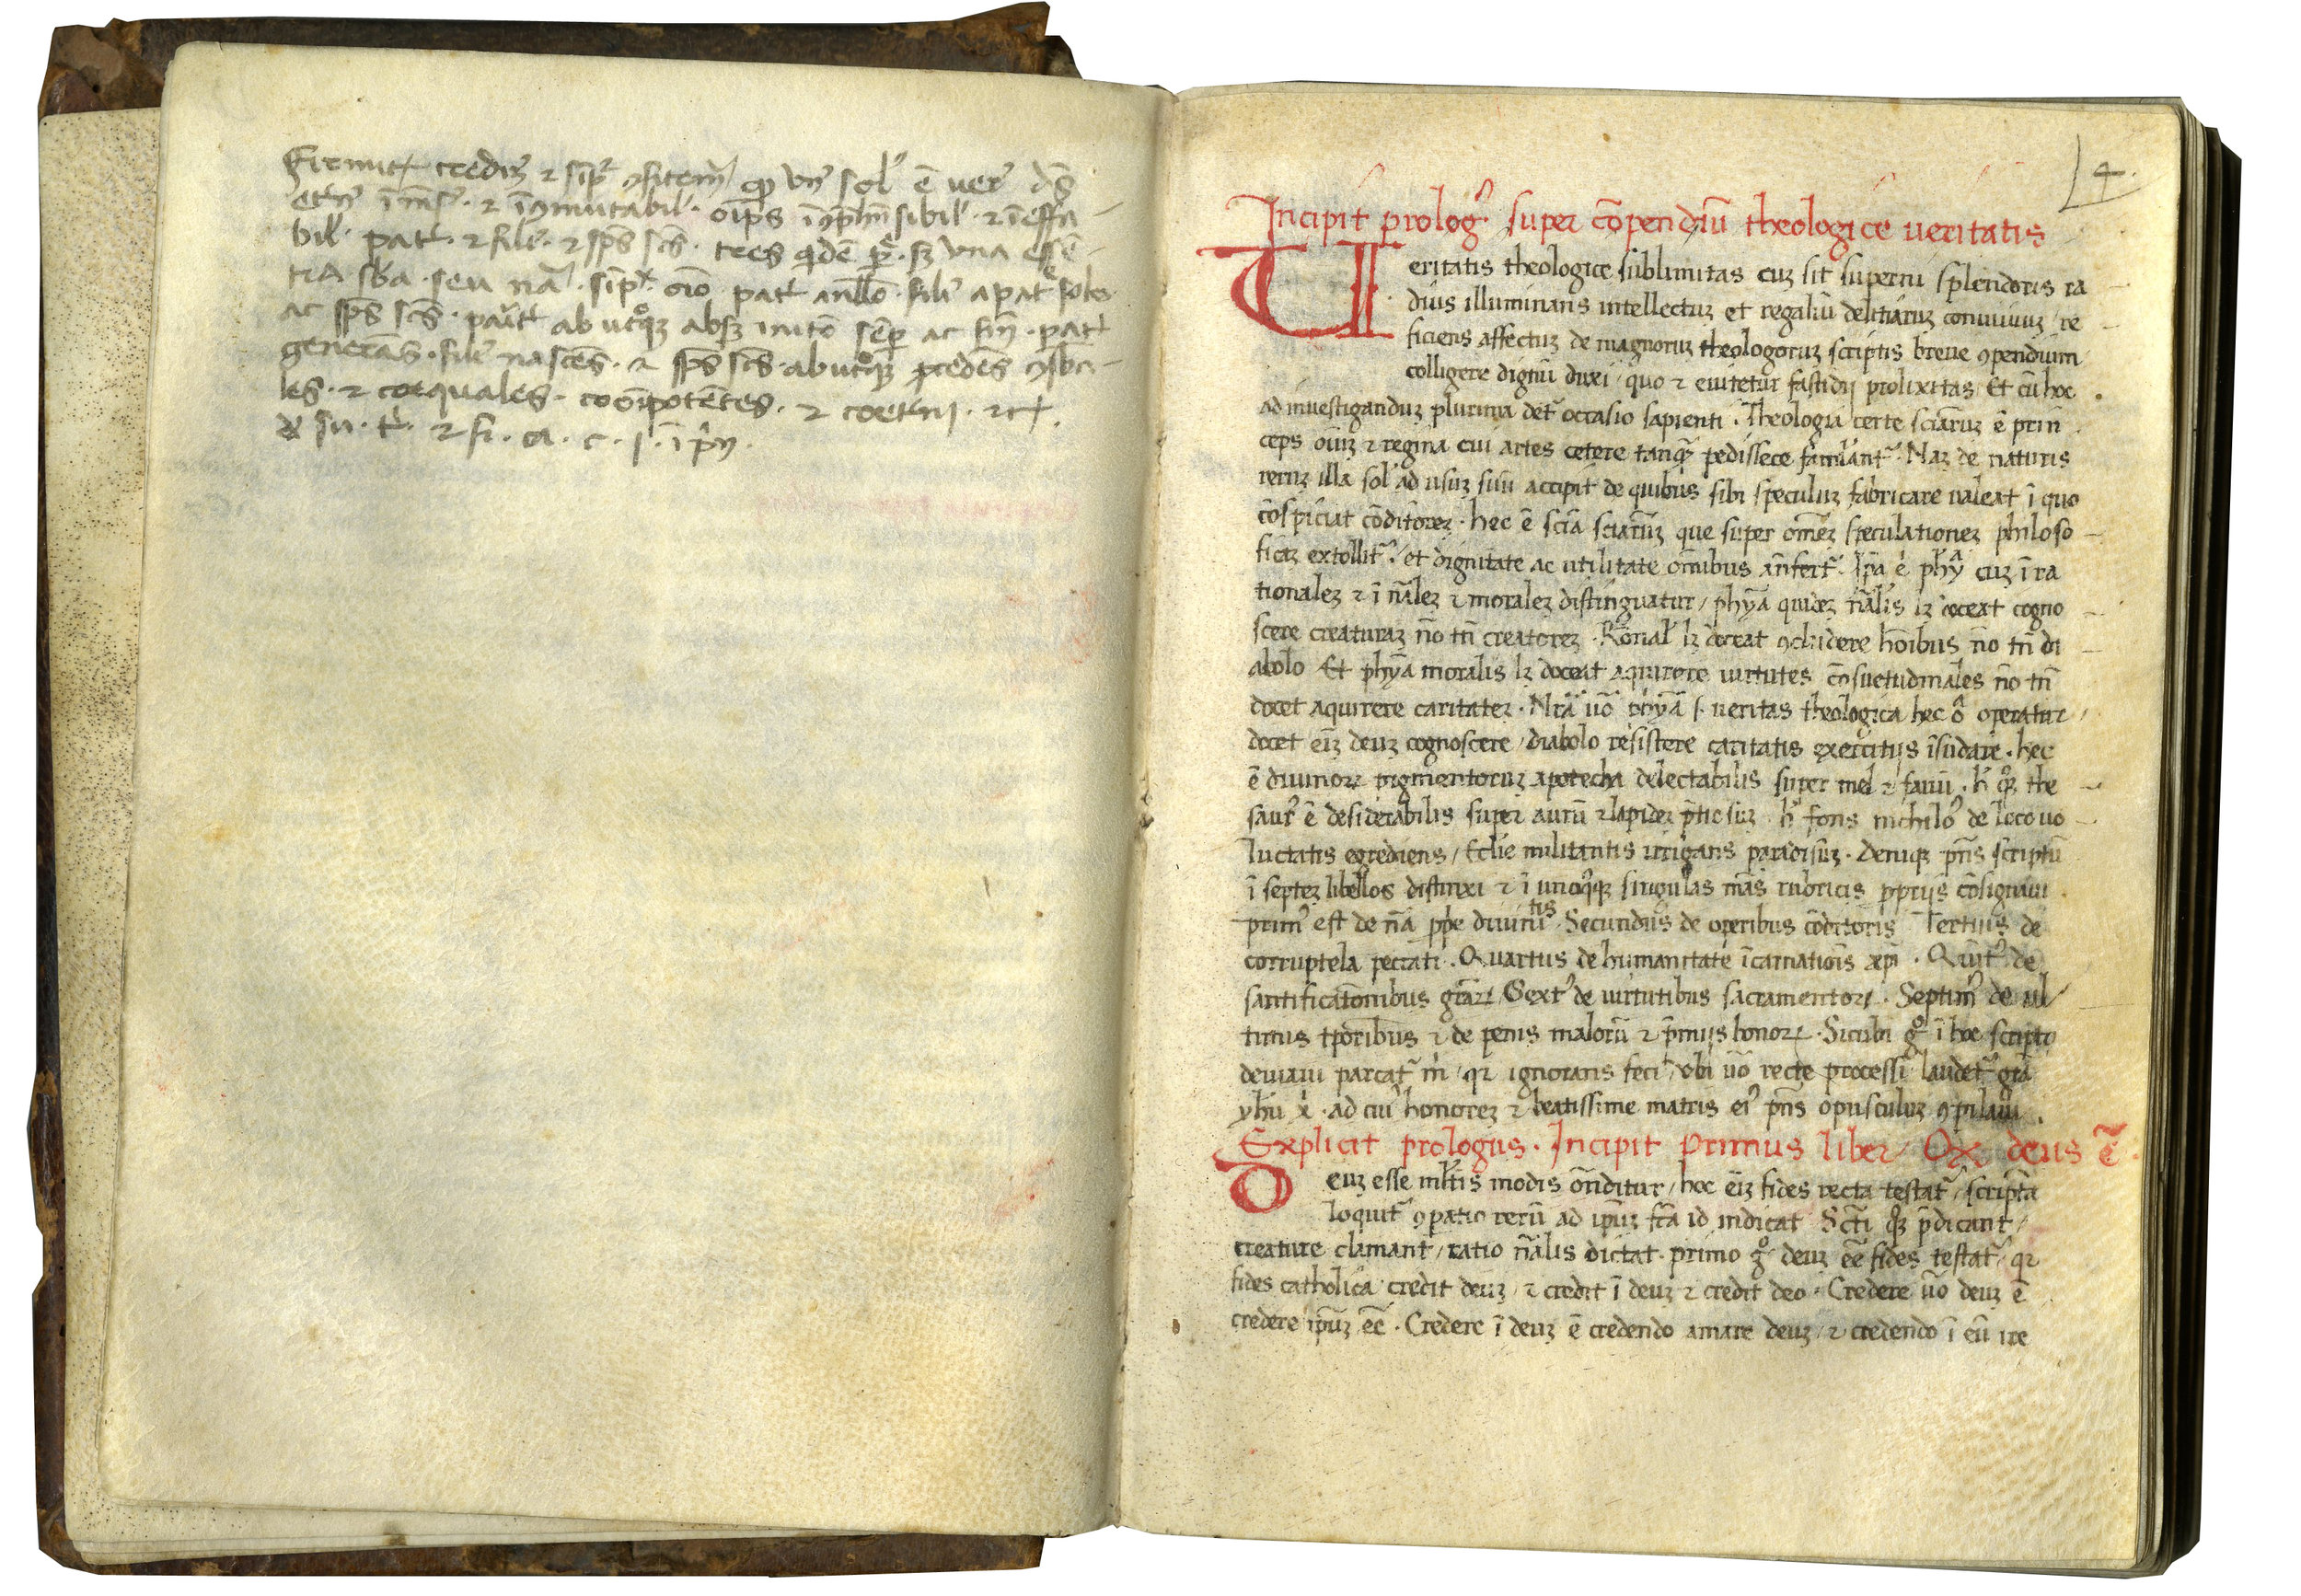 Firmit᷑ credim᷒ ⁊ simpr ꝯfitem᷑ ꝙ vn᷒ sol᷒ ē uer᷒ ds̄
et̄n᷒ īmēs᷒ · ⁊ īꝯmutabil᷒ · oīps īꝯprehn̄sibil᷒ · ⁊ īeffa
bil᷒ · pat̄ · ⁊ fili᷒ · ⁊ sps̄ scs̄ · tres qidē · sꝫ vna essē
tia sb̄a · seu nā · simpͯ · oīo pat̄ anullo · fili᷒ a patͤ solo
ac sps̄ scs̄ · ab utͦqꝫ absqꝫ initō sēp ac fin̄ · pat̄
generās · fili᷒ nascēs · ⁊ sps̄ scs̄ · ab utͦqꝫ ꝓcedēs ꝯsba
les · ⁊ coequales · cooīpotētes · ⁊ coet̄ni · ⁊c̄ ·
⁊ fi · a · c · i · ī prin
4
Incipit prolog᷒ super cōpendiū theologice ueritatis
Ueritatis theologice sublimitas cuꝫ sit superni splendoris ra
dius illuminans intellectuꝫ et regaliū delitiaruꝫ conuiuiuꝫ / re
ficiens affectuꝫ de magnoruꝫ theologoruꝫ scriptis breue ꝯpendium
colligere dignū duxi / quo ⁊ euitetur fastidij prolixitas / Et cū hoc
ad inuestiganduꝫ plurima det᷑ occasio sapienti . Theologia certe sciāruꝫ ē prin
ceps oīuꝫ ⁊ regina cui artes cetere tanqꝫ pedissece famulant᷑ . Naꝫ de naturis
reruꝫ illa sol᷒ ad usuꝫ suū accipit de quibus sibi speculuꝫ fabricare ualeat ī quo
cōspiciat cōditoreꝫ . hec ē scīa sciāruꝫ que super omēꝫ speculationeꝫ philoso
ficaꝫ extollit᷑ / et dignitate ac utilitate omībus anfert᷑ . Ip̄a .e. phyᵃ cuꝫ ī ra
tionaleꝫ ⁊ ī nāleꝫ ⁊ moraleꝫ distinguatur / phyā quideꝫ nālis lꝫ doceat cogno
scere creaturaꝫ nō tn̄ creatoreꝫ . Rōnal᷒ lꝫ doceat ꝯcludere hoībus nō tn̄ di
abolo Et phyā moralis lꝫ doceat aquirere uirtutes cōsuetudinales nō tn̄
docet aquirere caritateꝫ . Nrā uō phyā .s. ueritas theologica hec oīa operatur /
docet eīꝫ deuꝫ cognoscere / diabolo resistere caritatis exercitijs īsudare . hec
ē diuinoꝝ pigmentoruꝫ apotecha delectabilis super mel ⁊ fauū . h᷒ qꝫ the
saur᷒ ē desiderabilis super aurū ⁊ lapideꝫ p̄tiosuꝫ h᷒ fons nichil᷒o de loco uo
luctatis egrediens / Ecclīe militantis irrigans paradisuꝫ . Deniqꝫ pn̄s scriptū
ī septeꝫ libellos distinxi ⁊ ī unoqͦqꝫ singulas mās rubricis ꝓprijs cōsignaui .
prim᷒ est de nā ꝓpe diuinitis . Secundus de operibus cōditoris Tertius de
corruptela peccati . Quartus de humanitate īcarnationis xp̄i . Quīt᷒ de
santificatōnibus grāꝝ / Sext᷒ de uirtutibus sacramentoꝝ . Septim᷒ de ul
timis tporibus ⁊ de penis malorū ⁊ p̄mijs bonoꝝ . Sicubi gͦ ī hoc scripto
deuiaui parcat᷑ m̄ / qꝛ ignorans feci / vbi uō recte processi laudet᷑ grā
yhu x̄ . ad cui᷒ honoreꝫ ⁊ beatissime matris ei᷒ pn̄s opusculuꝫ ꝯpilaui .
Explicit prologus . Incipit Primus liber / Qꝫ deus ē .
Deuꝫ esse ml̄tis modis on̄ditur / hoc eīꝫ fides recta testat᷑ / scriptā
loquit᷑ ꝯpatio rerū ad ip̄uꝫ fcā id indicat Scti qꝫ p̄dicant /
creature clamant / ratio nālis dictat . primo gͦ deuꝫ eē fides testat᷑ / qꝛ
fides catholica credit deuꝫ / ⁊ credit ī deuꝫ ⁊ credit deo . Credere uō deuꝫ ē
credere ip̄uꝫ eē . Credere ī deuꝫ ē credendo amare deuꝫ / ⁊ credendo ī eū ire